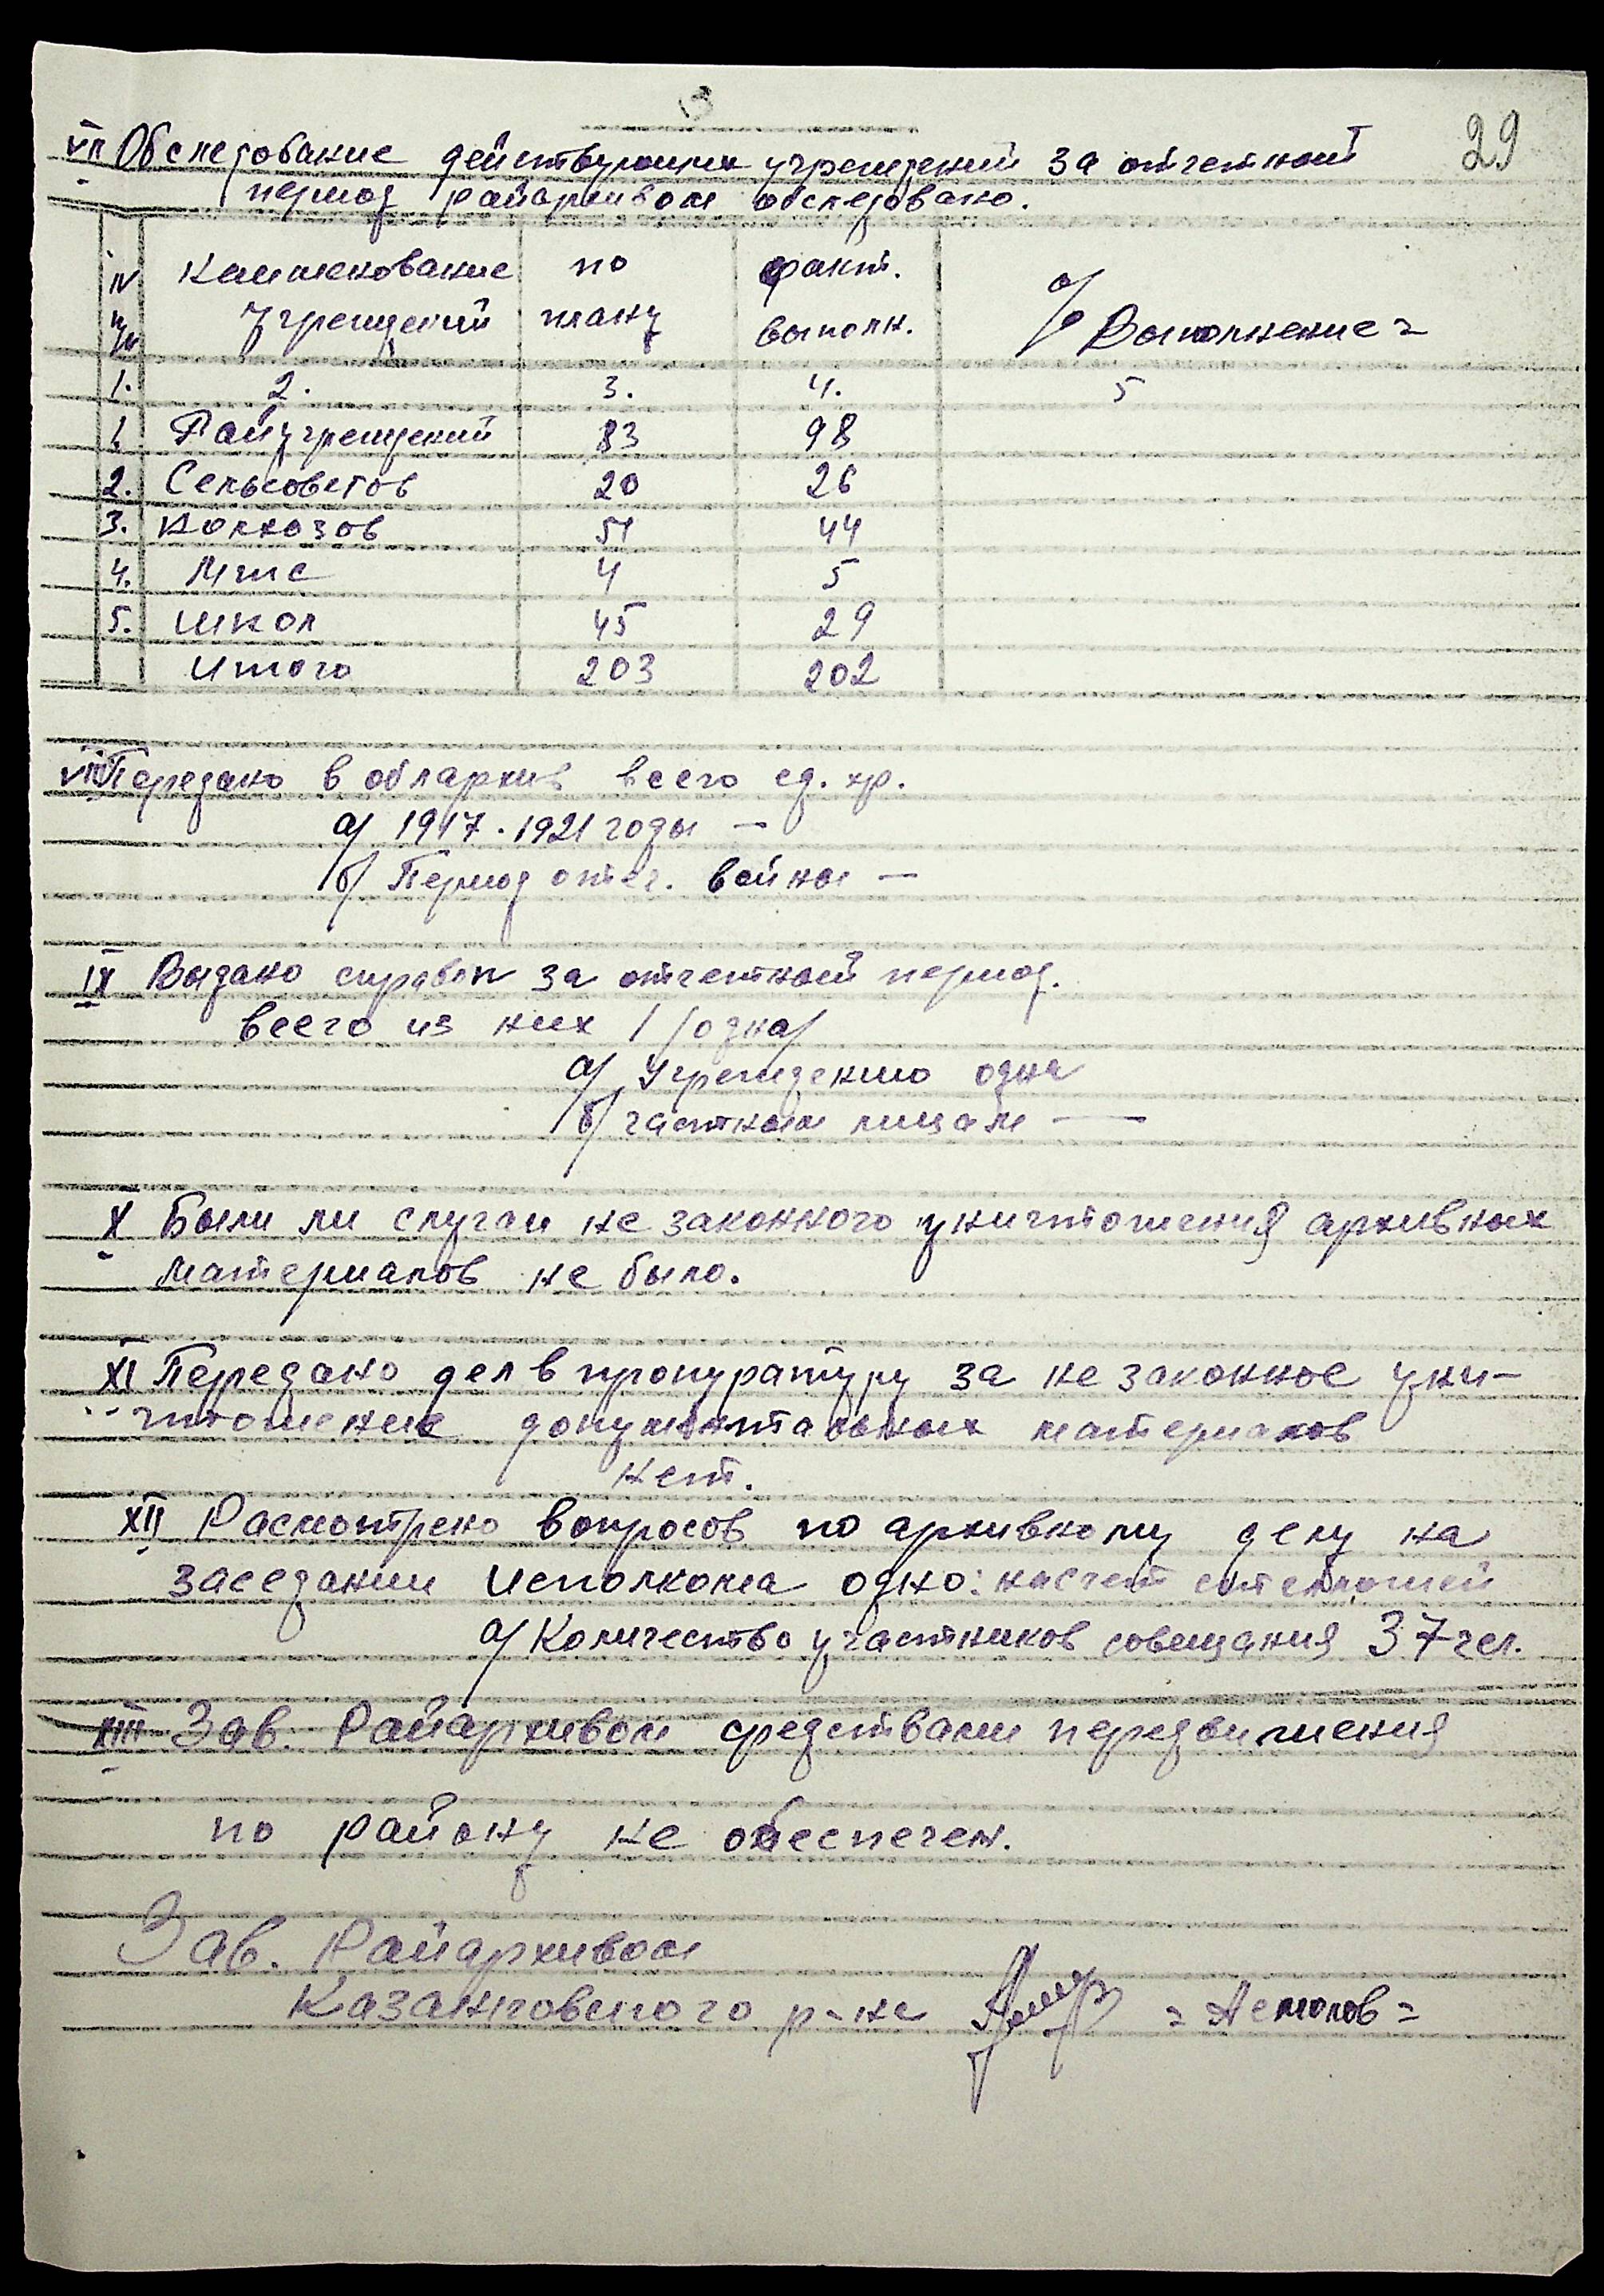 29
VII Обследование действующих учреждений за отчетной
период райархивом обследовано.
№ Наименование по факт. %
п/п учреждений плану выполн. Выполнение =
1. 2. 3. 4. 5
1. Райучреждений 83 98
2. Сельсоветов 20 26
3. Колхозов 51 44
4. Мтс 4 5
5. Школ 45 29
Итого 203 202
VIII Передано в облархив всего ед. хр.
а/ 1917-1921 годы —
б/ Период отеч. войны —
IX Выдано справок за отчетной период.
всего из них 1 /одна/
а/ Учреждению одна
б/ частным лицам —
X Были ли случаи не законного уничтожения архивных
материалов не было.
XI Передано дел в прокуратуру за не законное уни-
чтожение документальных материалов
нет.
XII Расмотрено вопросов по архивному делу на
заседании Исполкома одно: насчет
а/ Количество участников совещания 37 чел.
XIII Зав. Райархивом средствами передвижения
по району не обеспечен.
Зав. Райархивом
Казанковского р-на